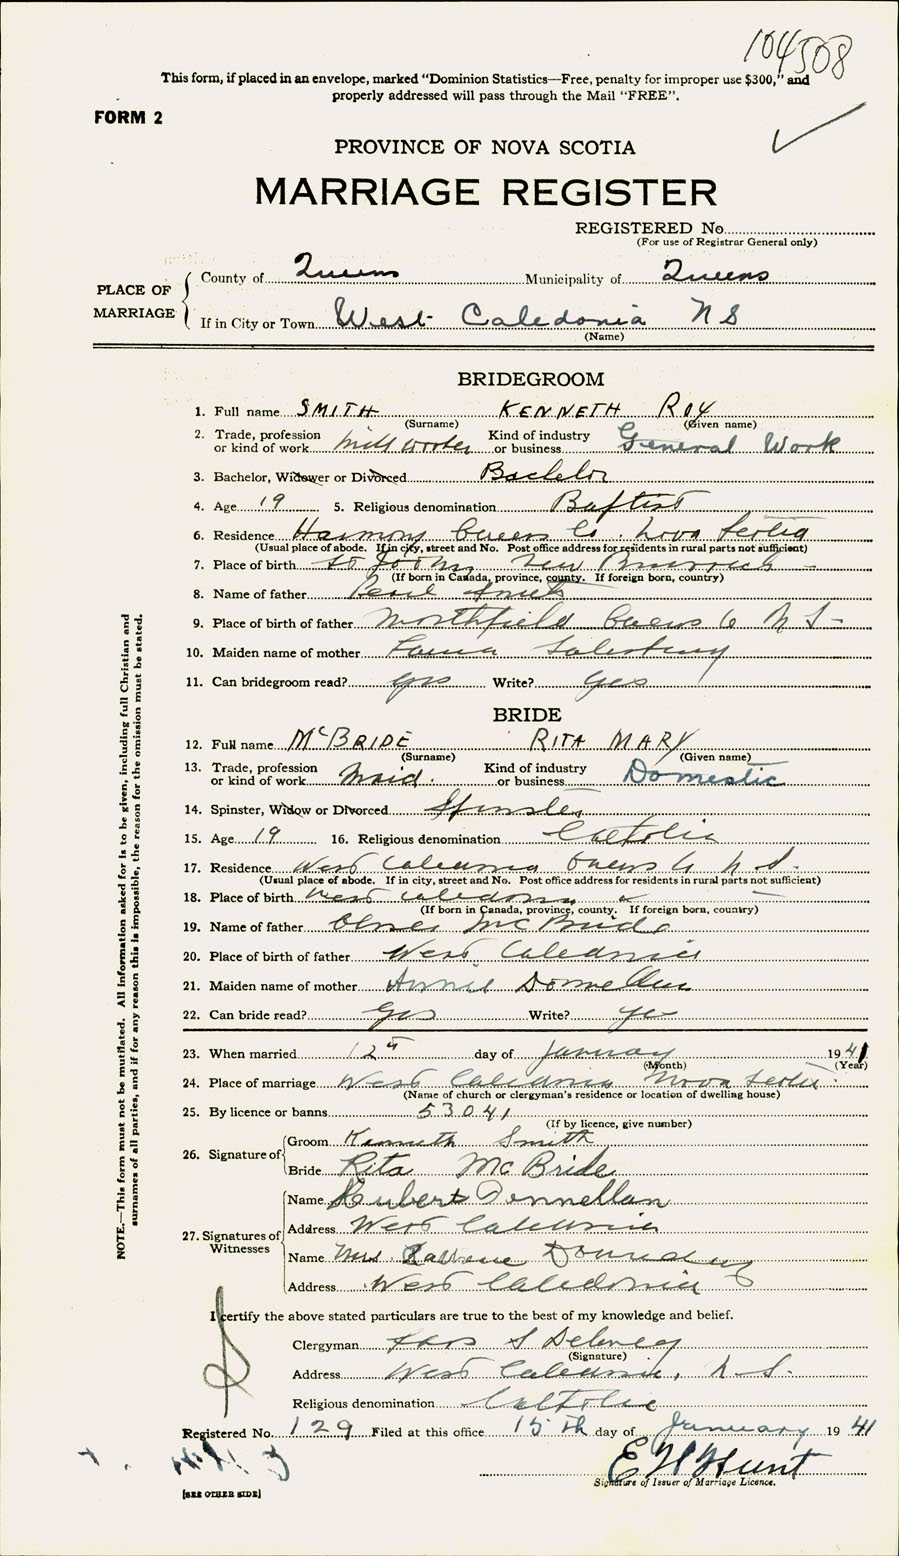 104508
This form, if placed in an envelope, marked "Dominion Statistics—Free, penalty for improper use $300," and
properly addressed will pass through the Mail "FREE".
FORM 2
PROVINCE OF NOVA SCOTIA
MARRIAGE REGISTER
REGISTERED No
(For use of Registrar General only)
PLACE OF MARRIAGE
County of Queens Municipality of Queens
If in City or Town West Caledonia N S
(Name)
BRIDEGROOM
1. Full name SMITH KENNETH ROY
(Surname) (Given name)
2. Trade, profession or kind of work Mill worker Kind of industry or business General Work
3. Bachelor, Widower or Divorced Bachelor
4. Age 19 5. Religious denomination Baptist
6. Residence Harmony Queens Co. Nova Scotia
(Usual place of abode. If in city, street and No. Post office address for residents in rural parts not sufficient)
7. Place of birth St John New
(If born in Canada, province, county. If foreign born, country)
8. Name of father Smith
9. Place of birth of father Northfield Queens Co N S
10. Maiden name of mother
11. Can bridegroom read? yes Write? yes
BRIDE
12. Full name McBRIDE RITA MARY
(Surname) (Given name)
13. Trade, profession or kind of work Maid. Kind of industry or business Domestic
14. Spinster, Widow or Divorced Spinster
15. Age 19 16. Religious denomination Catholic
17. Residence West Caledonia Queens Co N S.
(Usual place of abode. If in city, street and No. Post office address for residents in rural parts not sufficient)
18. Place of birth West Caledonia
(If born in Canada, province, county. If foreign born, country)
19. Name of father McBride
20. Place of birth of father West Caledonia
21. Maiden name of mother Annie Donnellan
22. Can bride read? yes Write? yes
23. When married 12th day of January 1941
(Month) (Year)
24. Place of marriage West Caledonia Nova Scotia
(Name of church or clergyman's residence or location of dwelling house)
25. By licence or banns 53041
(If by licence, give number)
26. Signature of
Groom Kenneth Smith
Bride Rita McBride
27. Signatures of Witnesses
Name Hubert Donnellan
Address West Caledonia
Name Mrs.
Address West Caledonia
I certify the above stated particulars are true to the best of my knowledge and belief.
Clergyman S
(Signature)
Address West Caledonia, N.S.
Religious denomination Catholic
Registered No. 129 Filed at this office 15th day of January 1941
E W Hunt
Signature of Issuer of Marriage Licence.
[SEE OTHER SIDE]
NOTE.—This form must not be mutilated. All information asked for is to be given, including full Christian and
surnames of all parties, and if for any reason this is impossible, the reason for the omission must be stated.